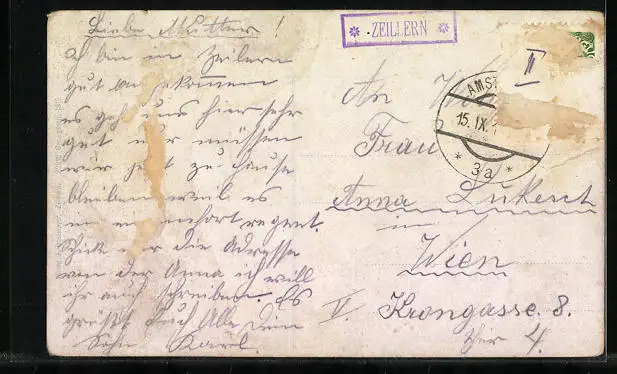 Liebe Mutter!
ich bin in Zeilern
gut an gekommen
es geht uns hier sehr
gut nur müssen
wir jetz zu hause
bleiben weil es
regnet.
Schicke mir die Adresse
von der Anna ich will
ihr auch schreiben. Es
grüsst Euch Alle Dein
Sohn Karl.
* ZEILLERN *
II
AMST
15. IX. 1
* 3a *
An
Frau
Anna Lukesch
in
Wien
V. Krongasse. 8.
thür 4.